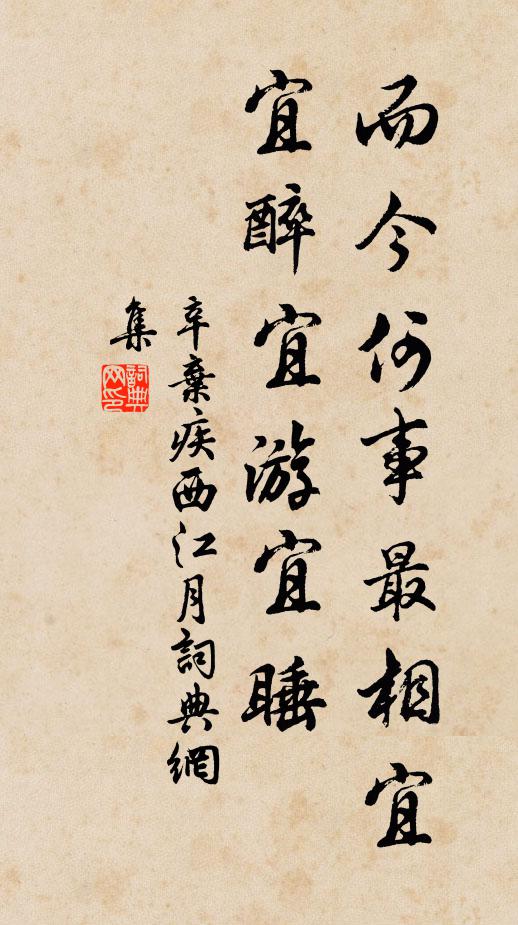 而今何事最相宜
宜醉宜游宜睡
辛棄疾西江月詞典網
集
詞典
网印